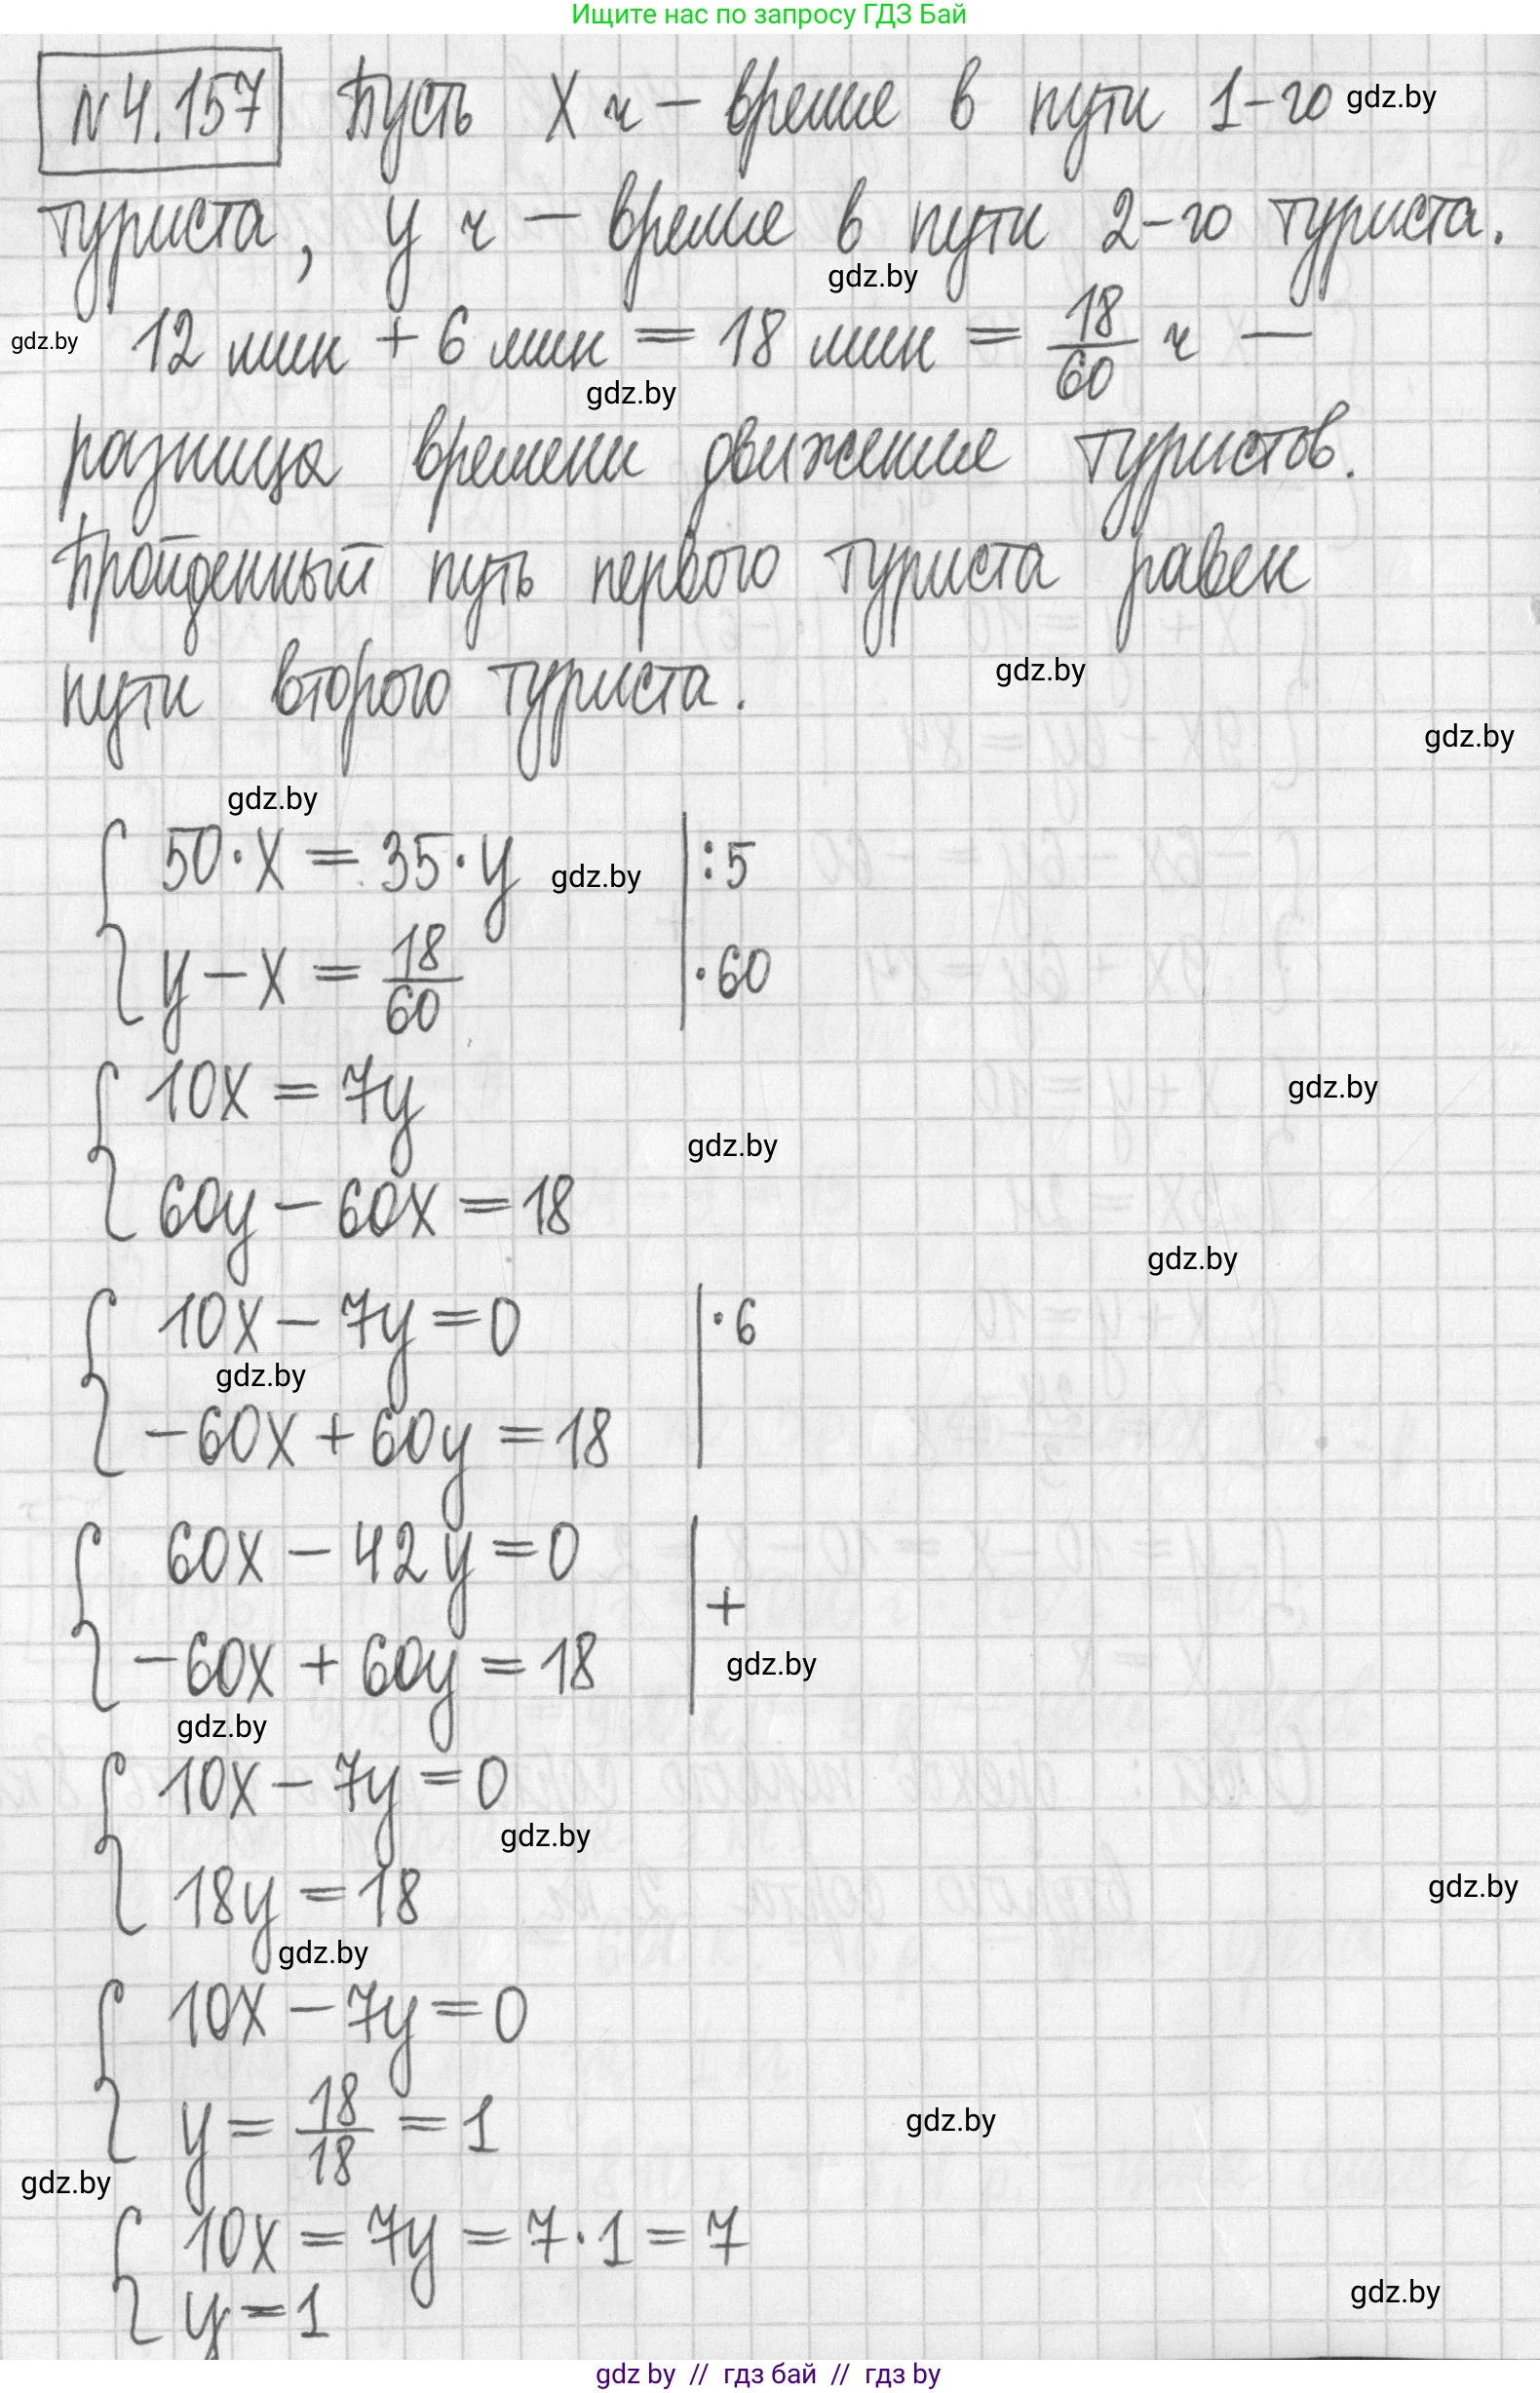 Ищите нас по запросу ГДЗ Бай
№ 4.157 Пусть x ч — время в пути 1-го gdz.by
туриста, y ч — время в пути 2-го туриста.
gdz.by
gdz.by 12 мин + 6 мин = 18 мин = 18/60 ч —
gdz.by
разница времени движения туристов.
Пройденный путь первого туриста равен
пути второго туриста. gdz.by
gdz.by
gdz.by
{ 50·x = 35·y gdz.by | :5
y − x = 18/60 | ·60
{ 10x = 7y gdz.by
gdz.by
60y − 60x = 18
gdz.by
{ 10x − 7y = 0 | ·6
gdz.by
−60x + 60y = 18
{ 60x − 42y = 0 | +
−60x + 60y = 18 gdz.by
gdz.by
{ 10x − 7y = 0
gdz.by
18y = 18 gdz.by
gdz.by
{ 10x − 7y = 0
y = 18/18 = 1 gdz.by
gdz.by
{ 10x = 7y = 7·1 = 7
y = 1 gdz.by
gdz by // гдз бай // гдз by